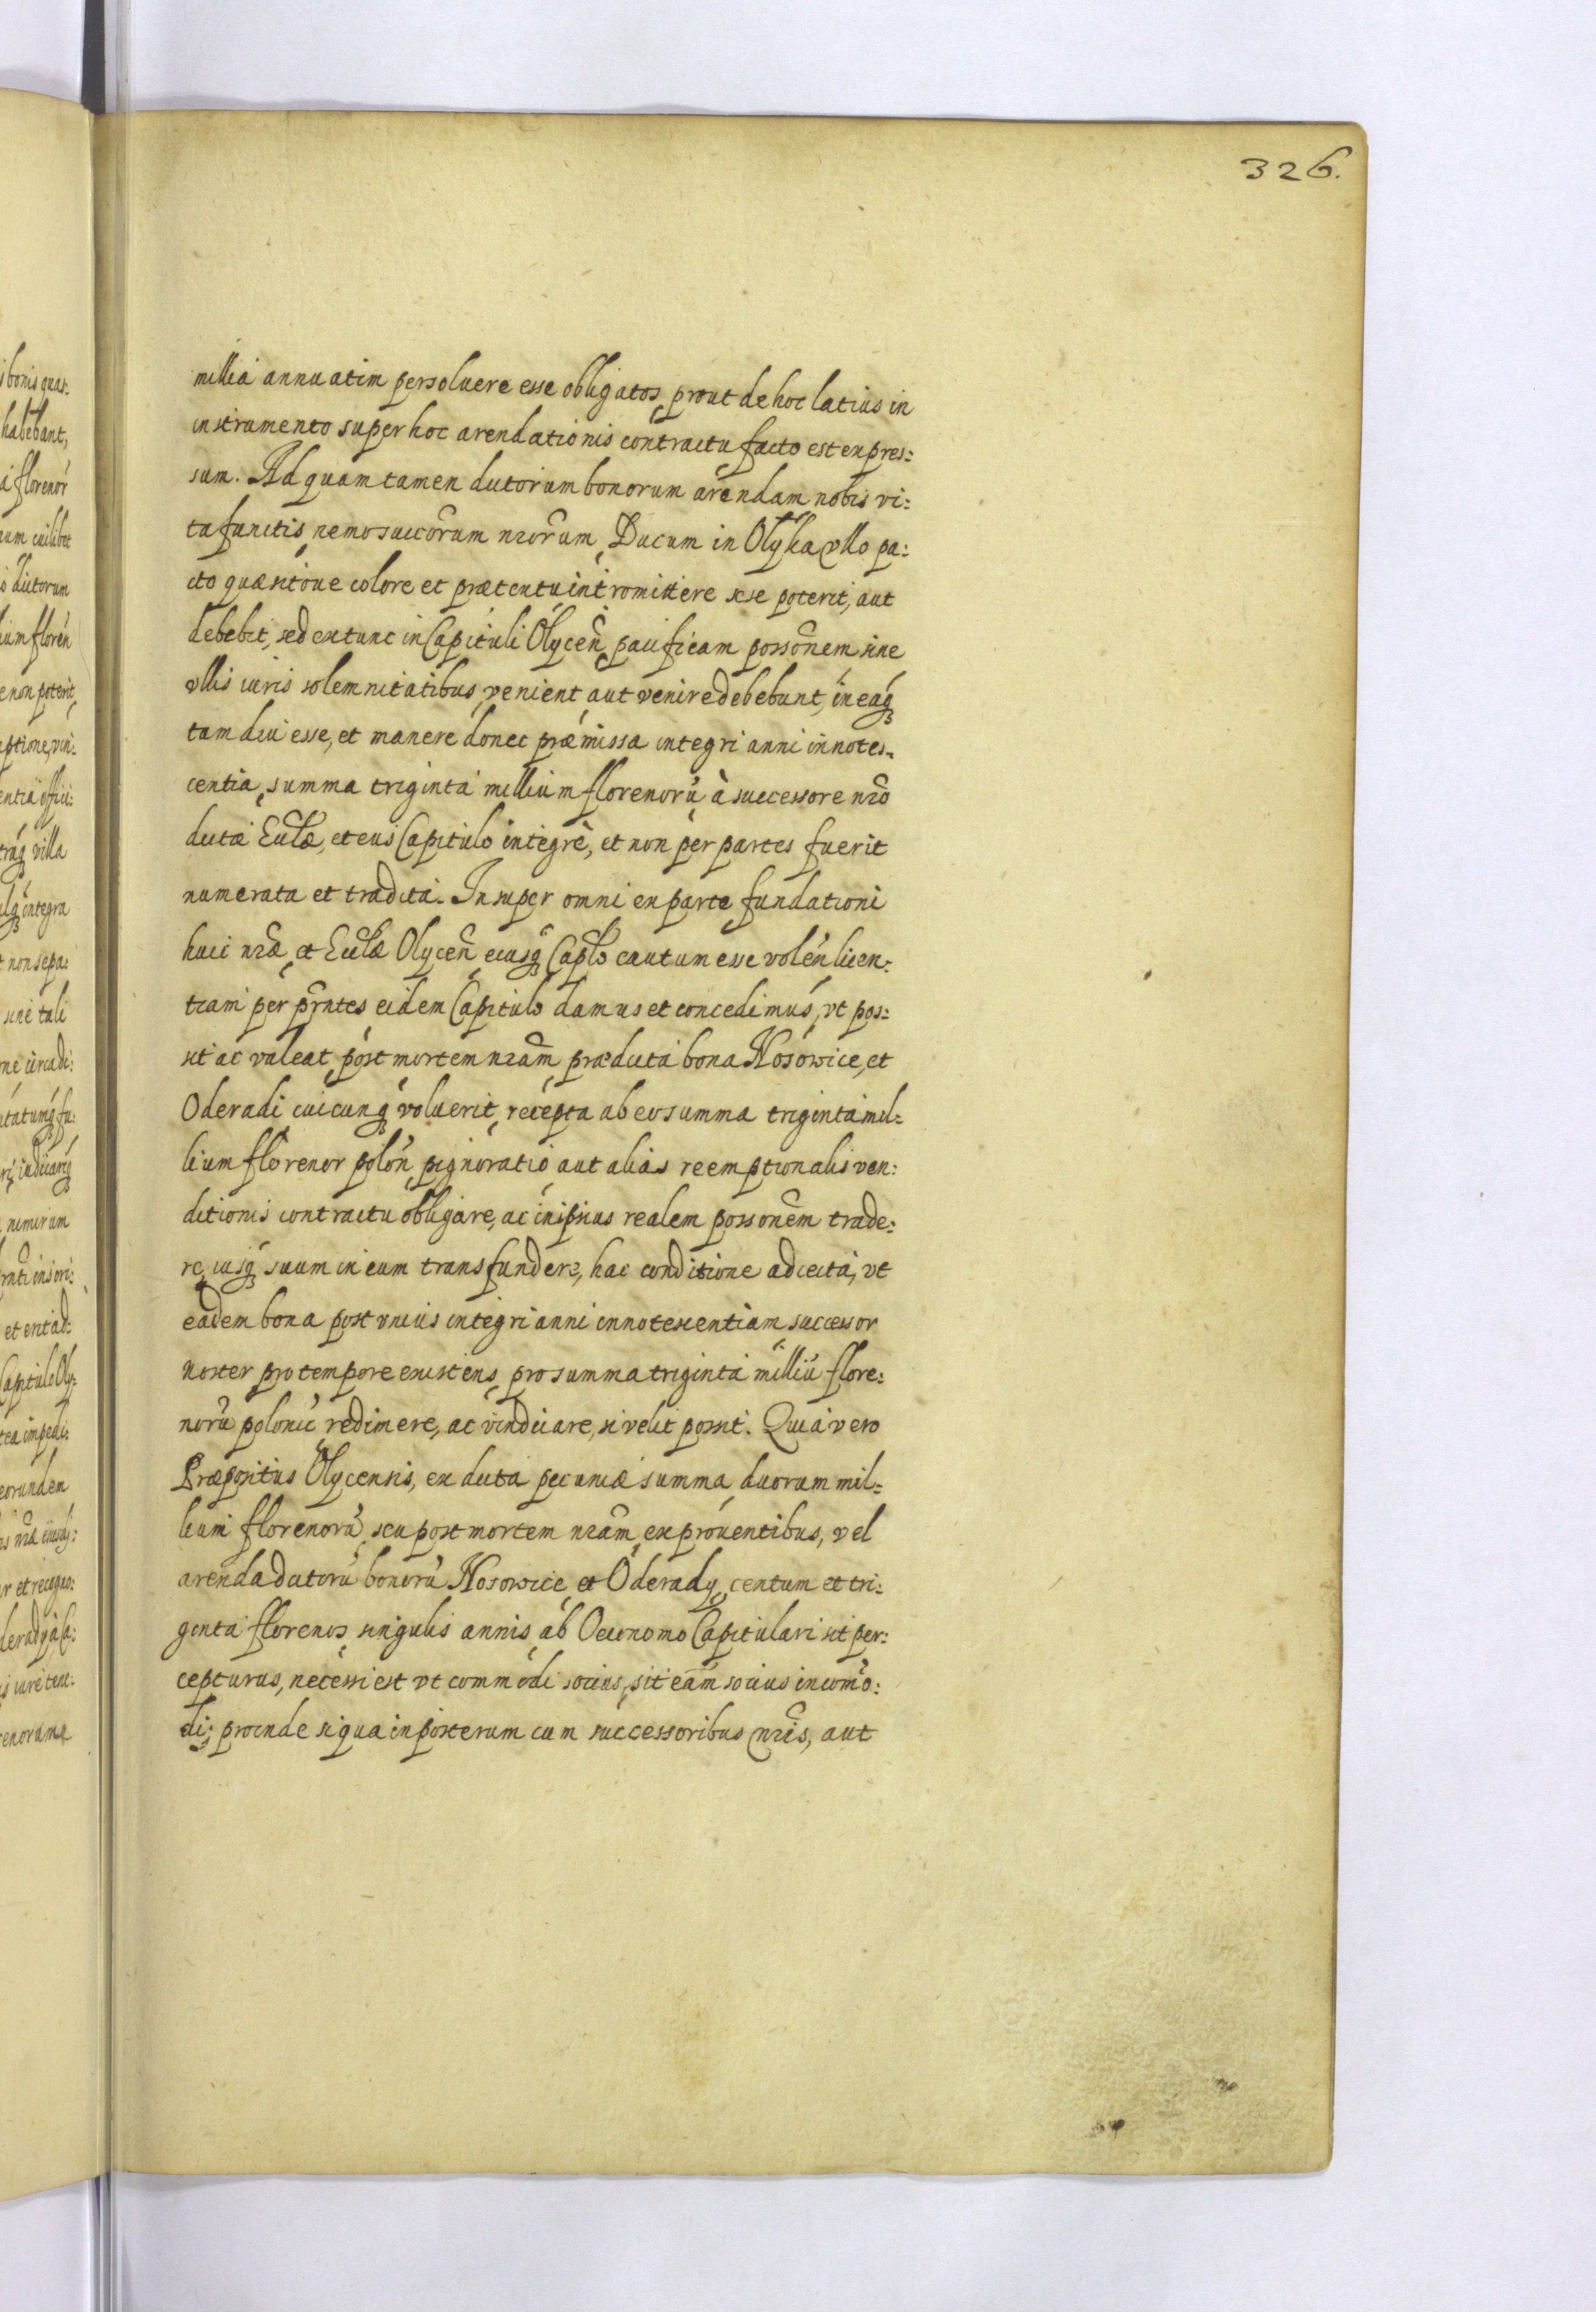 326.
millia annuatim persoluere esse obligatos, prout de hoc latius in
instrumento super hoc arendationis contractu facto est expres:
sum. Ad quam tamen dictorum bonorum arendam nobis vi:
ta functis, nemo succōrum nr̄orum, Ducum in Olyka vllo pa:
cto quæsitoue colore et prætextu intromittere sese poterit, aut
debebit, sed extunc in Capituli Olyceñ pacificam possōnem sine
vllis iuris solemnitatibus, venient aut venire debebunt, in eaq̄ꝫ
tam diu esse, et manere donec præmissa integri anni innotes:
centia, summa triginta millium florenorū à successore nr̄o
dictæ Eccłæ, et eius Capitulo integrè, et non per partes fuerit
numerata et tradita. Insuper omni ex parte fundationi
huic nr̄æ et Eccłæ Olyceñ eiusq̄ꝫ Capłs cautum esse voleń licen:
tiam per pñtes eidem Capitulo damus et concedimus, vt pos:
sit ac valeat, post mortem nr̄am, prædicta bona Nosowice, et
Oderadi cuicunq̄ꝫ voluerit, recepta ab eo summa triginta mil:
lium florenor̄ poloń, pignoratio aut alias reemptionalis ven:
ditionis contractu obligare, ac in ipsius realem possonēm trade:
re, iusq̄ꝫ suum in eum transfundere, hac conditione adiecta, vt
eadem bona post vnius integri anni innotescentiam successor
noster pro tempore existens, pro summa triginta milliū flore:
norū polonic̄ redimere, ac vindicare, si velit possit. Quia vero
Præpositus Olycensis, ex dicta pecuniæ summa, duorum mil:
lium florenorū, seu post mortem nr̄am, ex prouentibus, vel
arenda dictorū bonorū Nosowice, et Oderady, centum et tri:
ginta florenos, singulis annis, ab Oeconomo Capitulari sit per:
cepturus, necessi est vt commodi socius, sit eām socius incom̄o:
di; proinde si qua in posterum cum successoribus nr̄is, aut